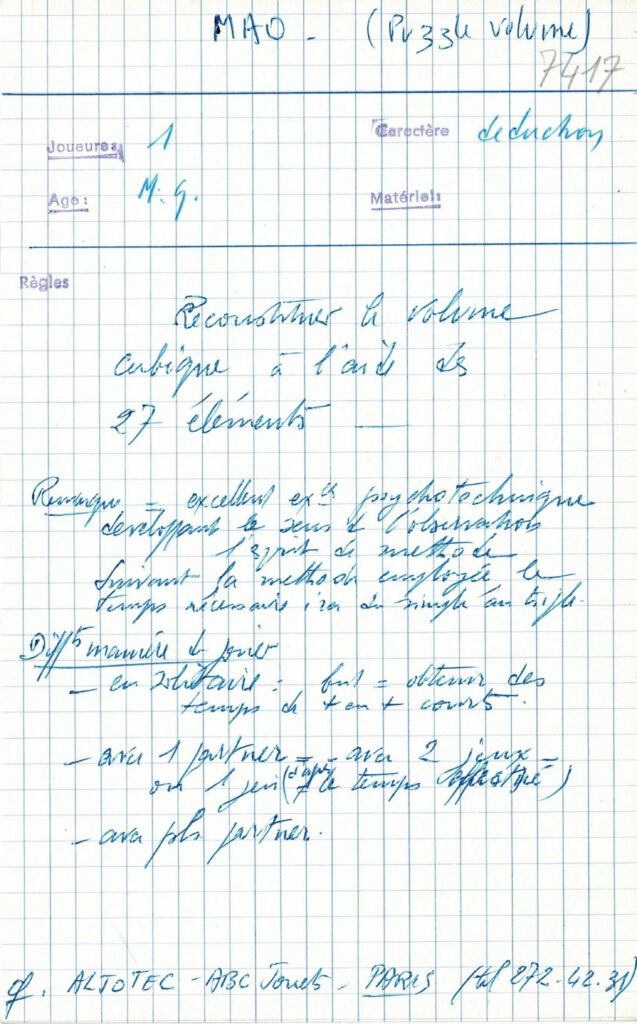 MAO - (Puzzle volume)
7417
Joueurs: 1
Caractère deduction
Age: M. G.
Matériel:
Règles
Reconstituer le volume
cubique à l'aide des
27 éléments —
Remarque = excellent exce psychotechnique
developpant le sens de l'observation
l'esprit de methode
suivant la methode employée le
temps nécessaire ira du simple au triple.
Diffts manière de jouer
- en solitaire : but = obtenir des
temps de + en + courts.
- avec 1 partner = - avec 2 jeux =
ou 1 jeu ( le temps )
- avec pls partner.
cf. ALTOTEC - ABC Jouets - PARIS (tel 272-42.31)